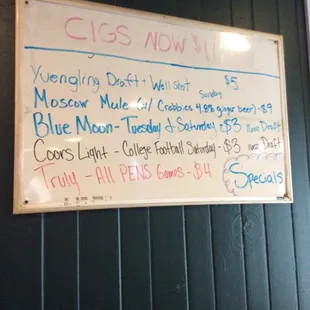 CIGS NOW $11
Yuengling Draft + Well Shot $5
Sunday
Moscow Mule (w/ Crabbies 4.8% ginger beer) - $9
Blue Moon - Tuesday & Saturday - $3 16oz Draft
Coors Light - College Football Saturday - $3 16oz Draft
Truly - All PENS Games - $4
Specials